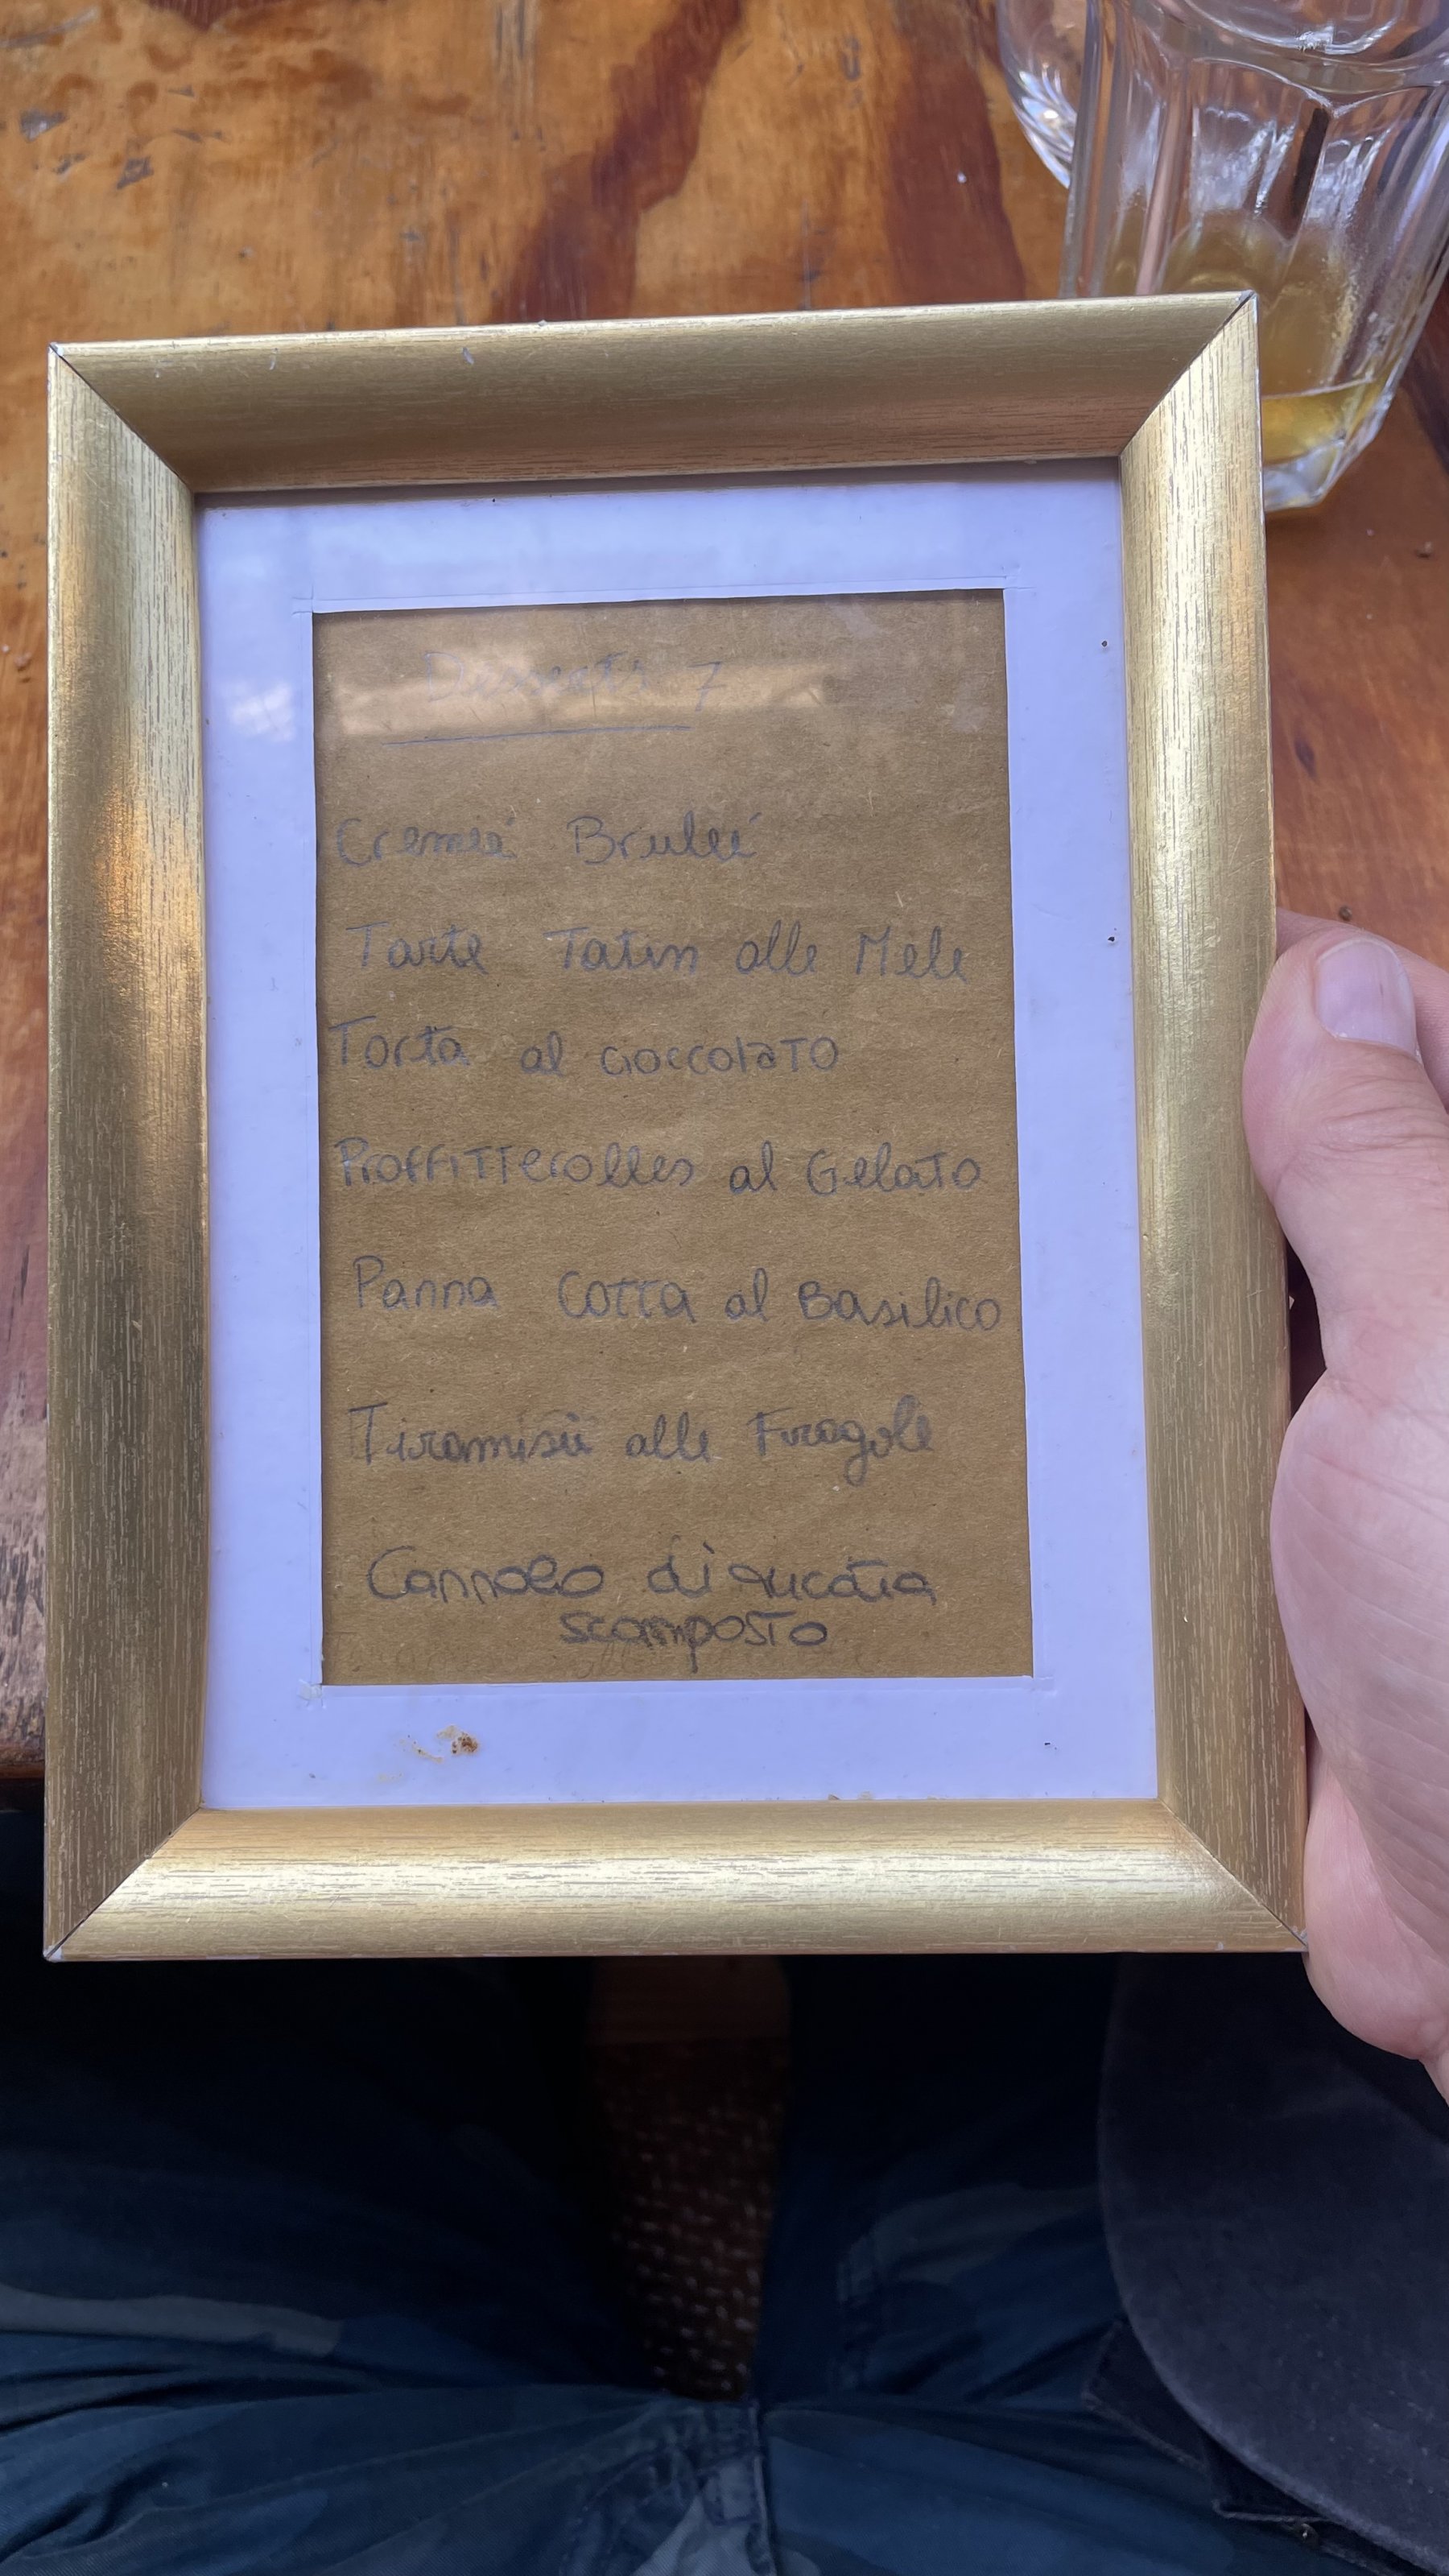 Desserts 7
Cremeé Bruleé
Tarte Tatin alle Mele
Torta al cioccolaTO
ProffiTTerolles al GelaTo
Panna COTTA al Basilico
Tiramisù alle Fragole
Cannolo di
scomposto